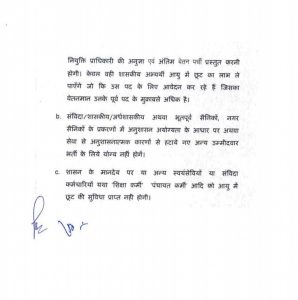 नियुक्ति प्राधिकारी की अनुज्ञा एवं अंतिम वेतन पर्ची प्रस्तुत करनी
होगी। केवल वही शासकीय अभ्यर्थी आयु में छूट का लाभ ले
पाएंगे जो कि उस पद के लिए आवेदन कर रहे है जिसका
वेतनमान उनके पूर्व पद के मुकाबले अधिक है।
b. संविदा/शासकीय/अर्धशासकीय अथवा भूतपूर्व सैनिकों, नगर
सैनिकों के प्रकरणों में अनुशासन अयोग्यता के आधार पर अथवा
सेवा से अनुशासनात्मक कारणों से हटाये गए अन्य उम्मीदवार
भर्ती के लिये योग्य नहीं होगें।
c. शासन के मानदेय पर या अन्य स्वयंसेवियों या संविदा
कर्मचारियों यथा 'शिक्षा कर्मी' 'पंचायत कर्मी' आदि को आयु में
छूट की सुविधा प्राप्त नहीं होगी।